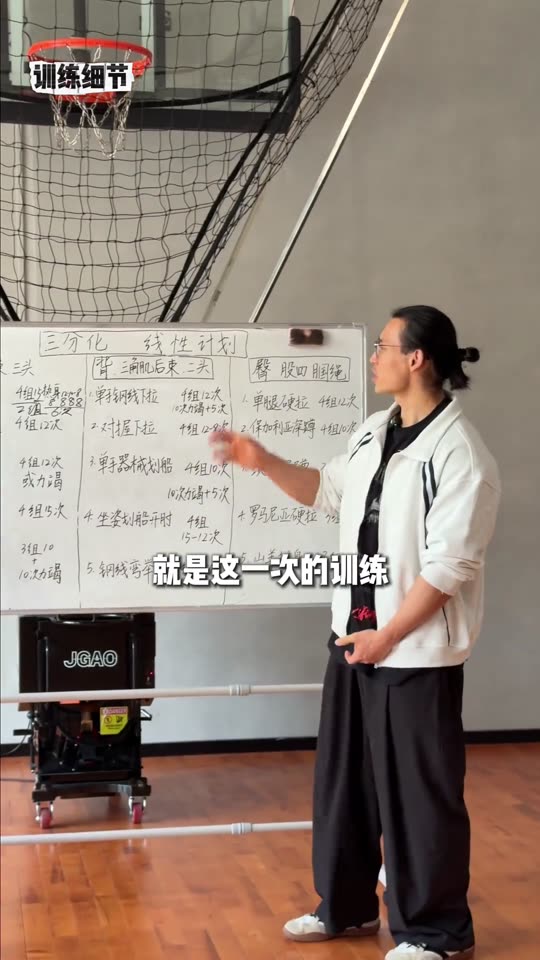 训练细节
三分化 线性计划
三头
4组15热身
2组 6次
4组12次
4组12次
或力竭
4组15次
3组10
+
10次力竭
背 三角肌后束 二头
1.单手钢线下拉 4组12次
10次力竭+5次
2.对握下拉 4组12-8次
3.单手器械划船 4组10次
10次力竭+5次
4.坐姿划船开肘 4组
15-12次
5.钢线弯举
臀 股四 腘绳
1.单腿硬拉 4组12次
2.保加利亚深蹲 4组10次
4.罗马尼亚硬拉
就是这一次的训练
JGAO
DANGER